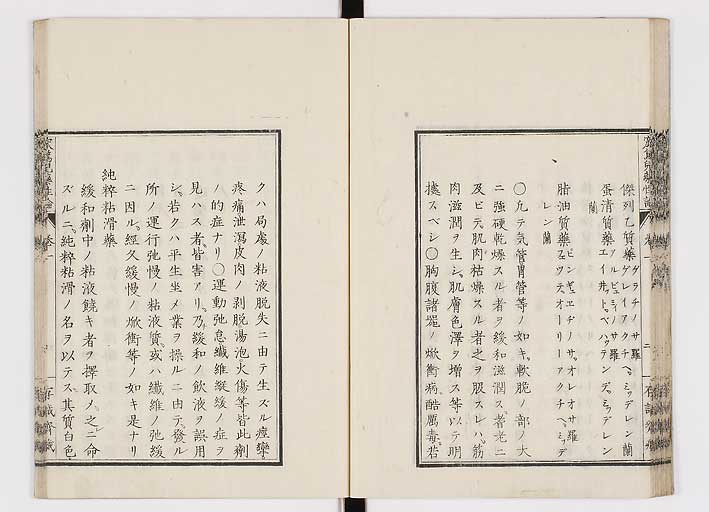 傑列乙質薬 ゲラチノサ羅 ゲレイアクチヘミッデレン蘭
蛋清質薬 アルビュミノサ羅 エイ井トベハッテンデミッデレン
蘭
脂油質薬 ピンギュエヂ子ノサオレオサ羅 ヱッテオーリーアクチヘミッデ
レン蘭
〇凡テ気管胃管等ノ如キ軟脆ノ部ノ大
ニ強硬乾燥スル者ヲ緩和滋潤ス者老ニ
及ビテ肌肉枯燥スル者之ヲ服スレバ筋
肉滋潤ヲ生シ肌膚色澤ヲ増ス等以テ明
據スベシ〇胸腹諸器ノ焮衝病酷厲毒若
クハ局處ノ粘液脱失ニ由テ生ズル痙攣
疼痛泄瀉皮肉ノ剥脱湯泡火傷等皆此劑
ノ的症ナリ〇運動弛怠纖維縱緩ノ症ヲ
見ハス者皆害アリ乃緩和ノ飲液ヲ誤用
シ若クハ平生坐メ業ヲ操ルニ由テ發ル
所ノ運行弛慢ノ粘液質或ハ纖維ノ弛緩
ニ因ル經久緩慢ノ焮衝等ノ如キ是ナリ
純粹粘滑藥
緩和劑中ノ粘液饒キ者ヲ擇取ノ之ニ命
ズルニ純粹粘滑ノ名ヲ以テス其質白色